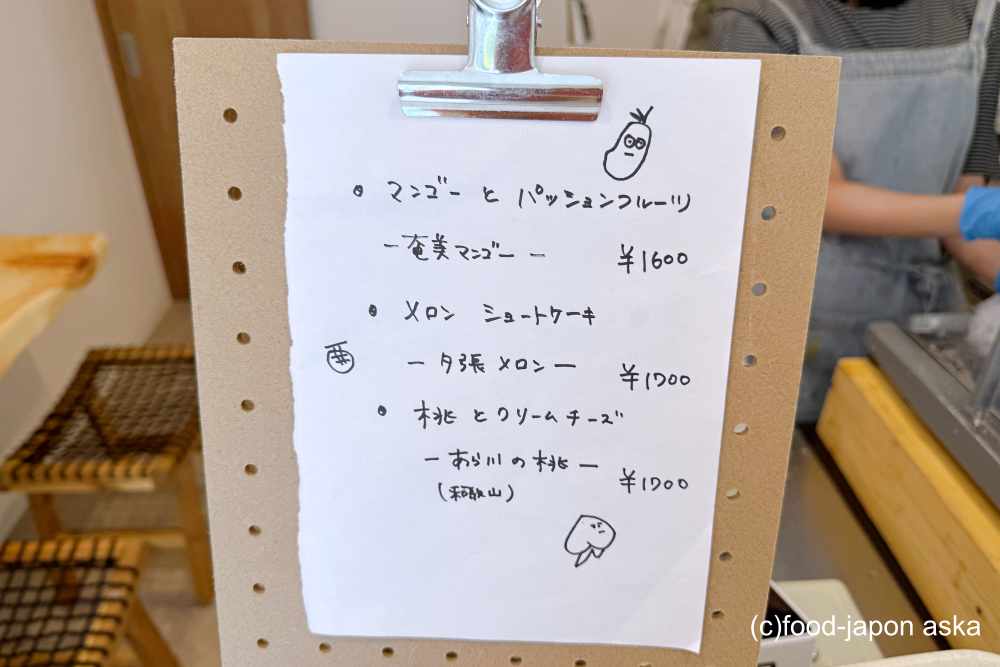 • マンゴー と パッションフルーツ
- 奄美マンゴー - ¥1600
• メロン ショートケーキ
- 夕張メロン - ¥1700
• 桃 と クリームチーズ
- あら川の桃 - ¥1700
(和歌山)
(c)food-japon aska